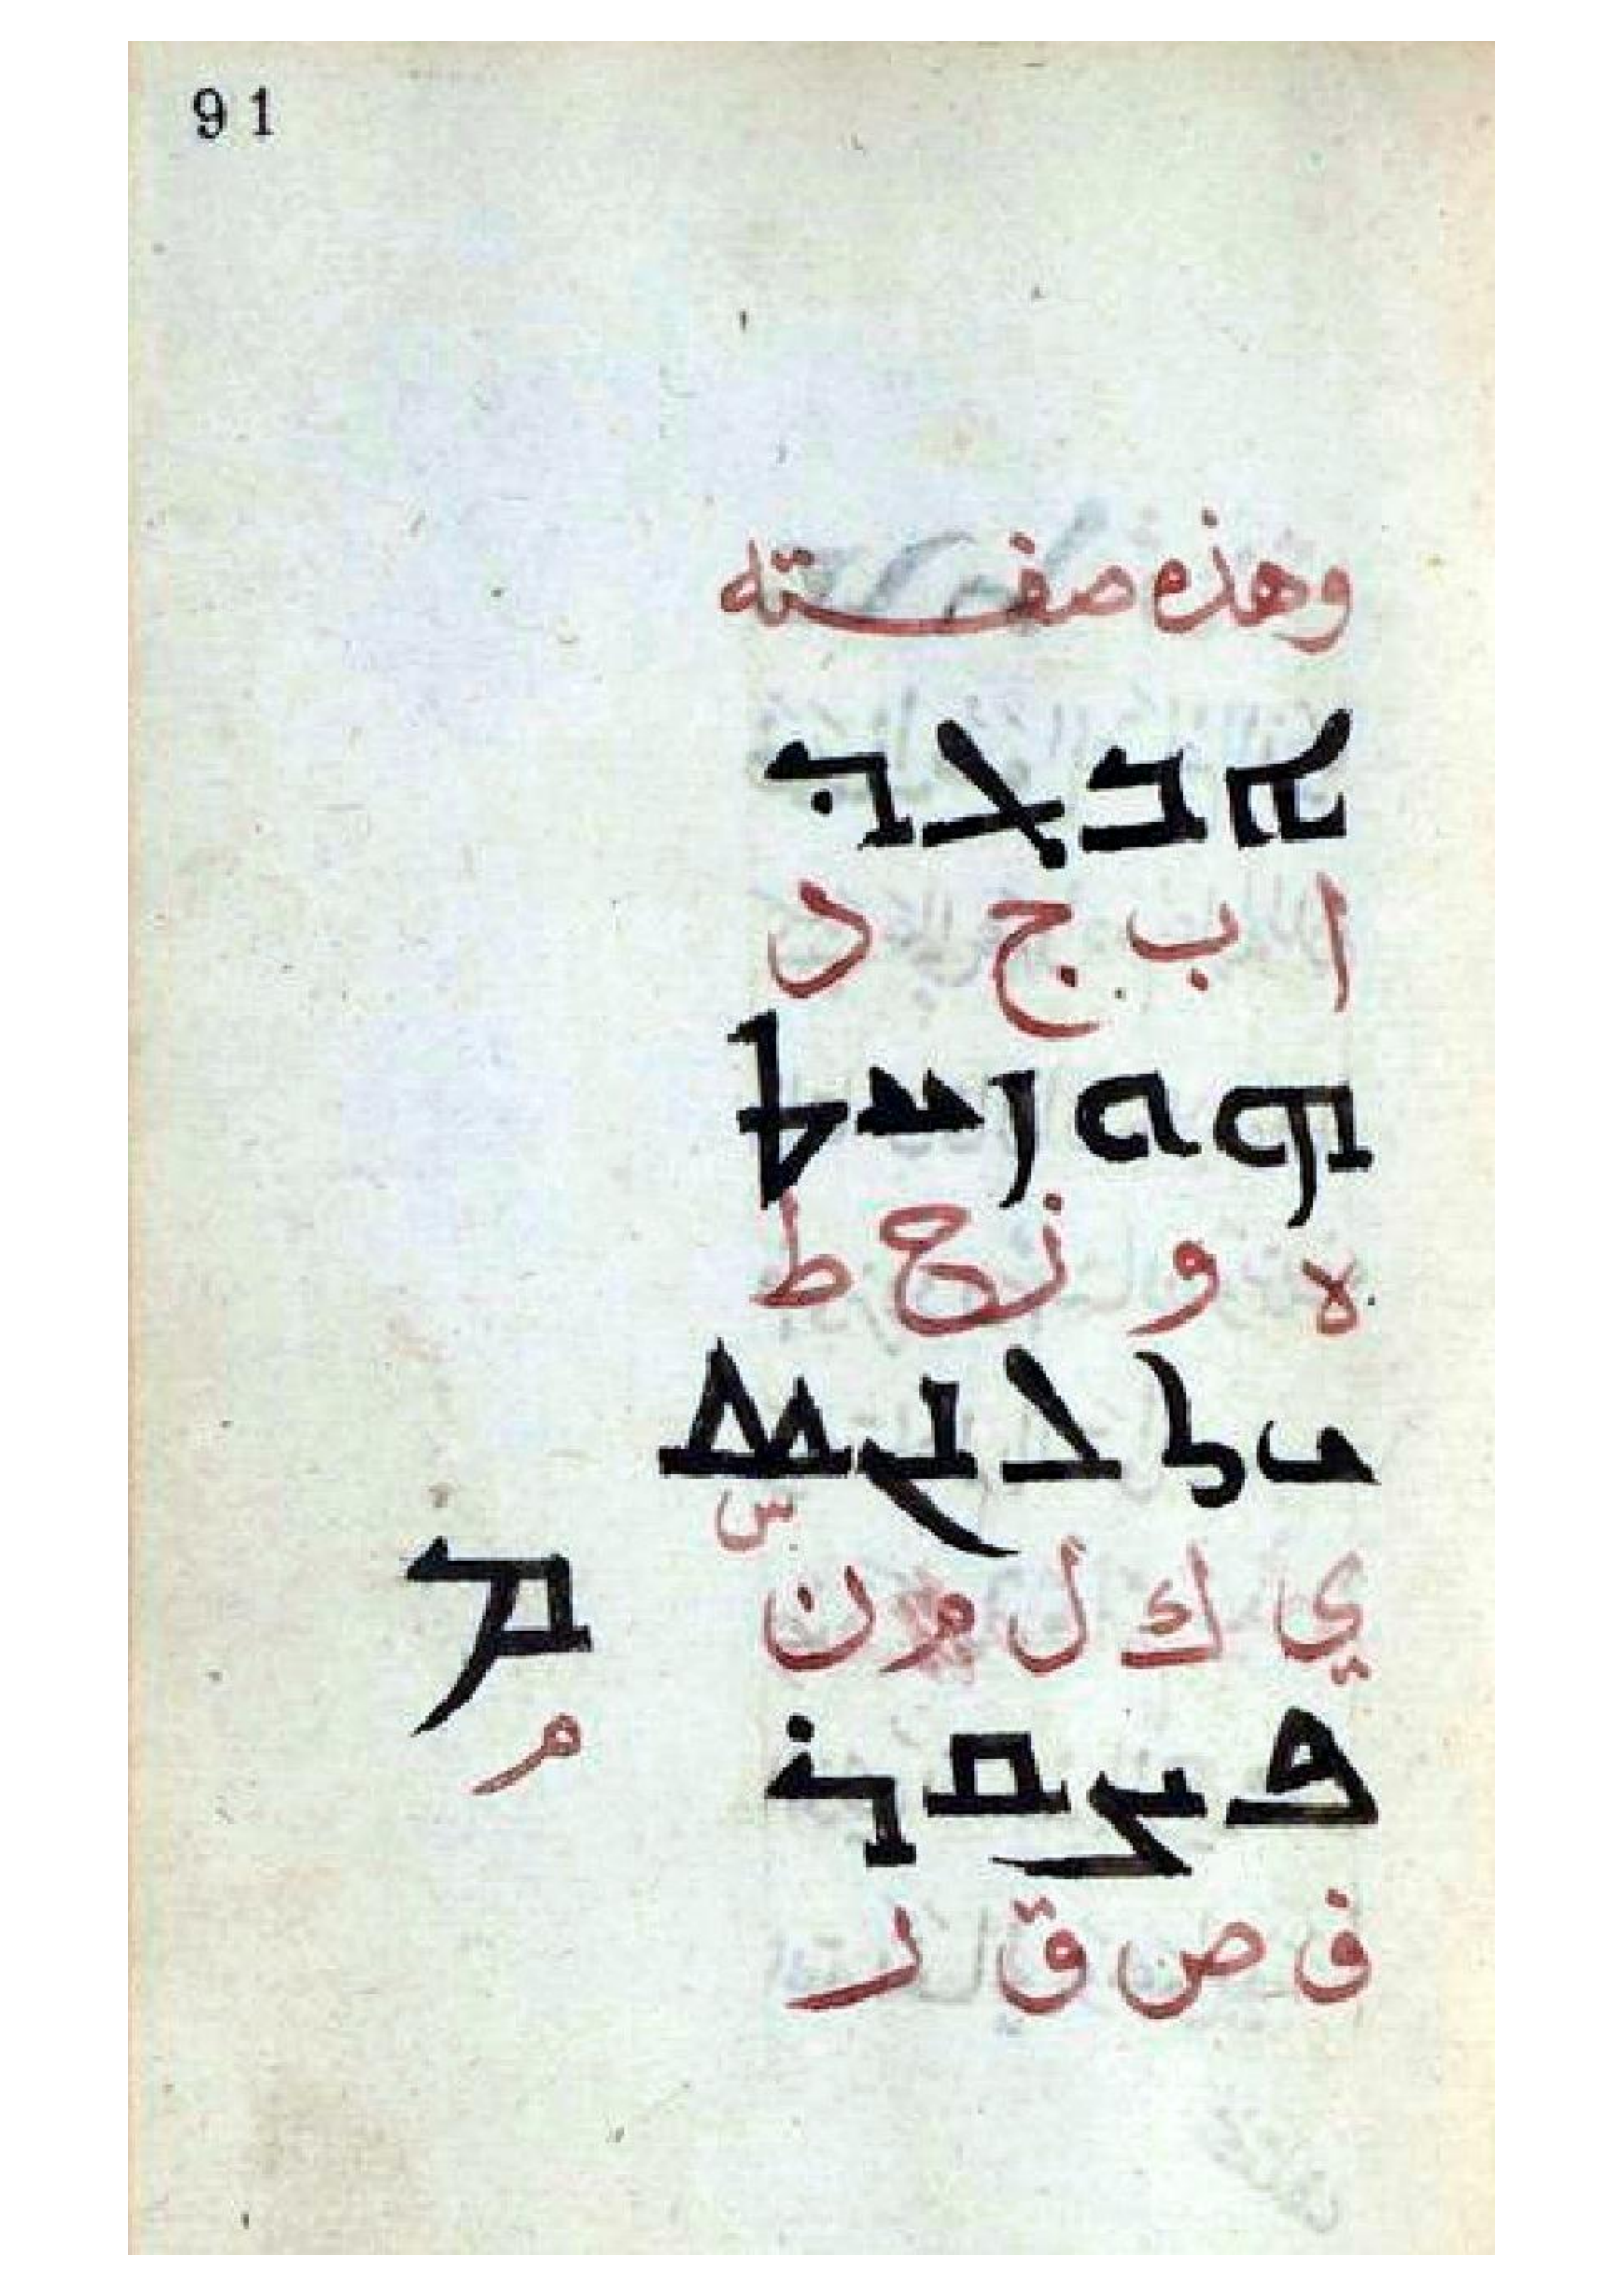 91
وهذه صفته
ܐ ܒ ܓ ܕ
ا ب ج د
ܗ ܘ ܙ ܚ ܛ
ه و ز ح ط
ܝ ܟ ܠ ܢ ܣ
س
ي ك ل م ن
ܡ
م
ܦ ܨ ܩ ܪ
ف ص ق ر